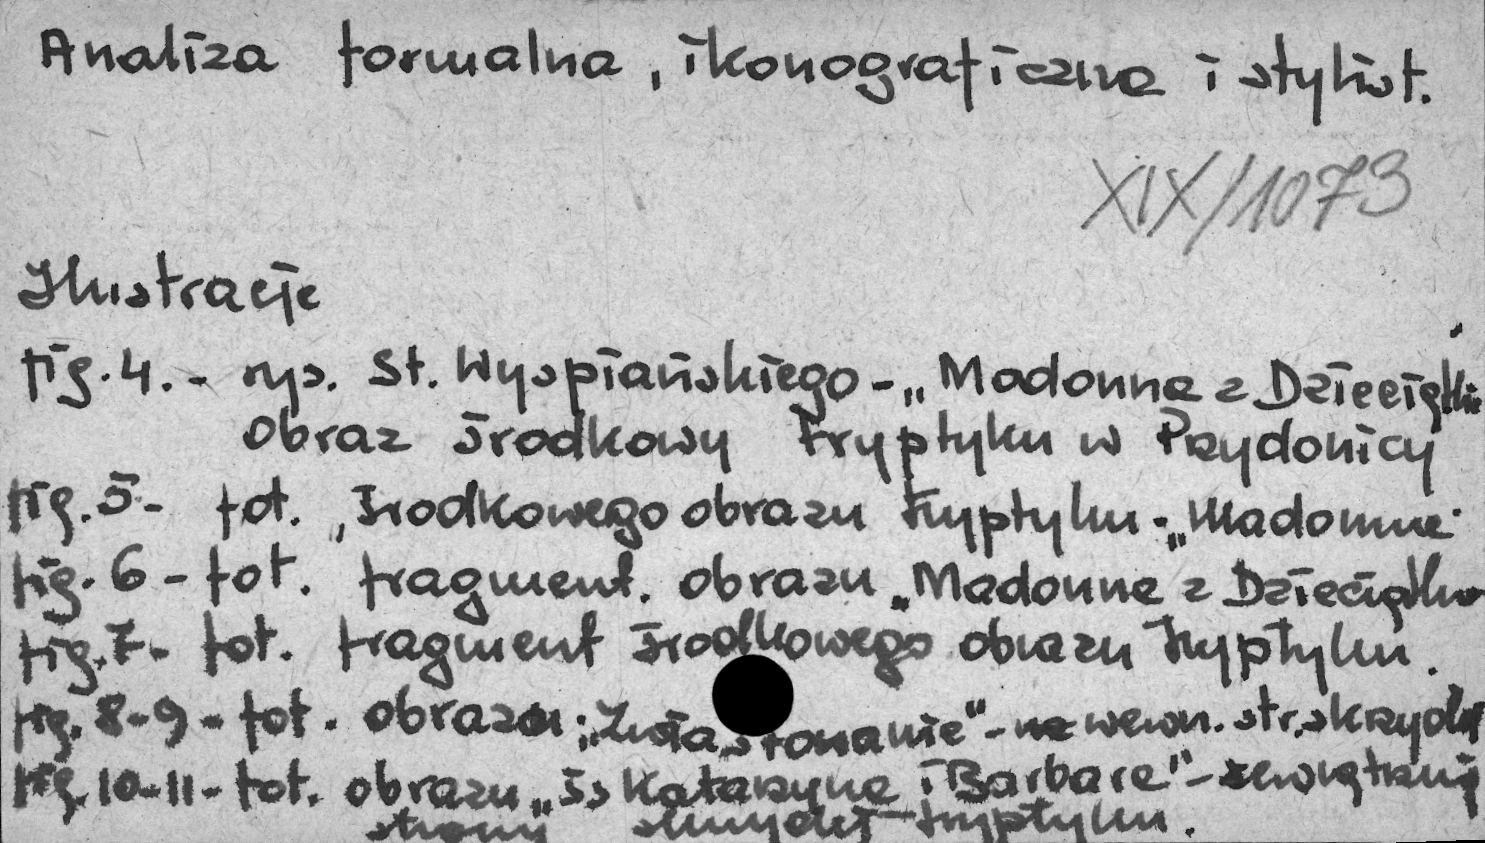 Analiza formalna, ikonograficzna i stylist.
XIX/1073
Ilustracje
fig. 4. - rys. St. Wyspiańskiego - „Madonna z Dzieciątkie
Obraz środkowy tryptyku w Przydonicy
fig. 5 - fot. środkowego obrazu tryptyku - „Madonna"
fig. 6 - fot. fragment. obrazu „Madonna z Dzieciątkiem
fig. 7 - fot. fragment środkowego obrazu tryptyku.
fig. 8-9 - fot. obrazu: „Zwiastowanie" - na wewn. str. skrzydeł
fig. 10-11 - fot. obrazu „Śś Katarzyna i Barbara" - zewnętrznej
strony skrzydeł tryptyku.